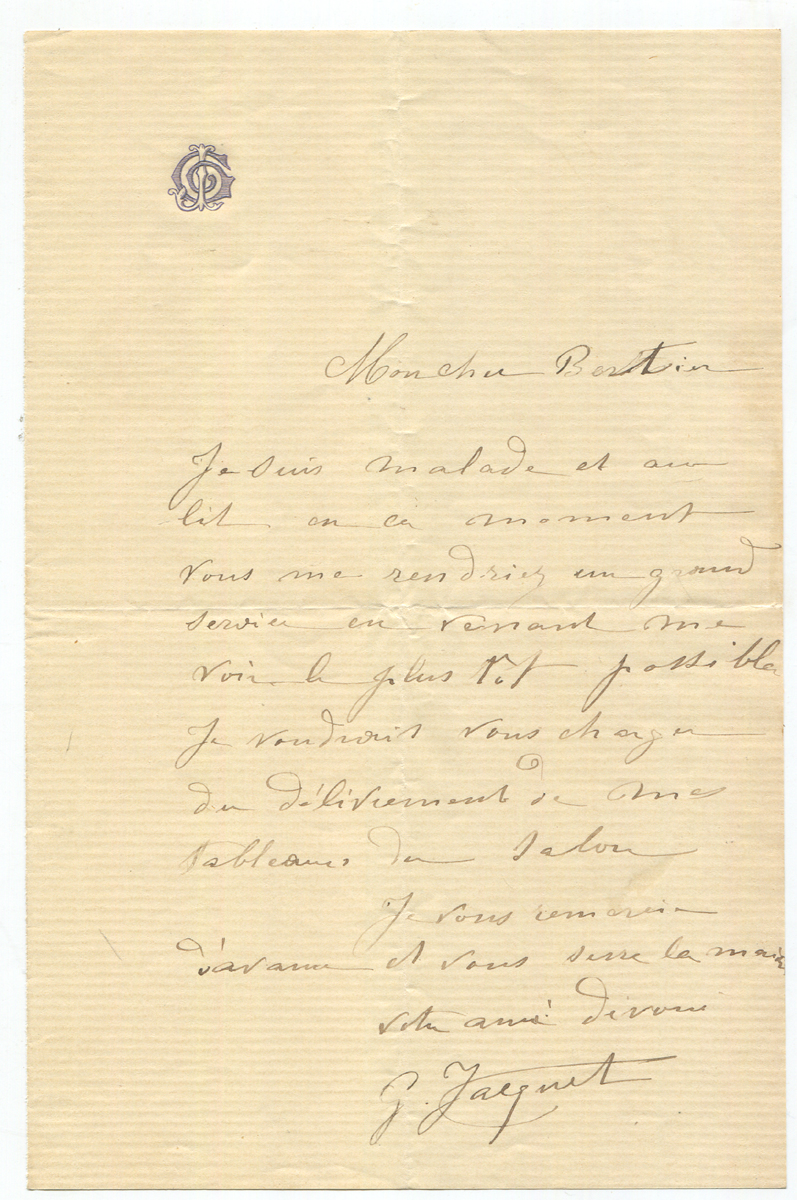 Mon cher Bertier
Je suis malade et au
lit en ce moment
vous me rendriez un grand
service en venant me
voir le plus tôt possible
Je voudrais vous charger
du délivrement de mes
tableaux du Salon
Je vous remercie
d'avance et vous serre la main
votre ami dévoué
G. Jacquet